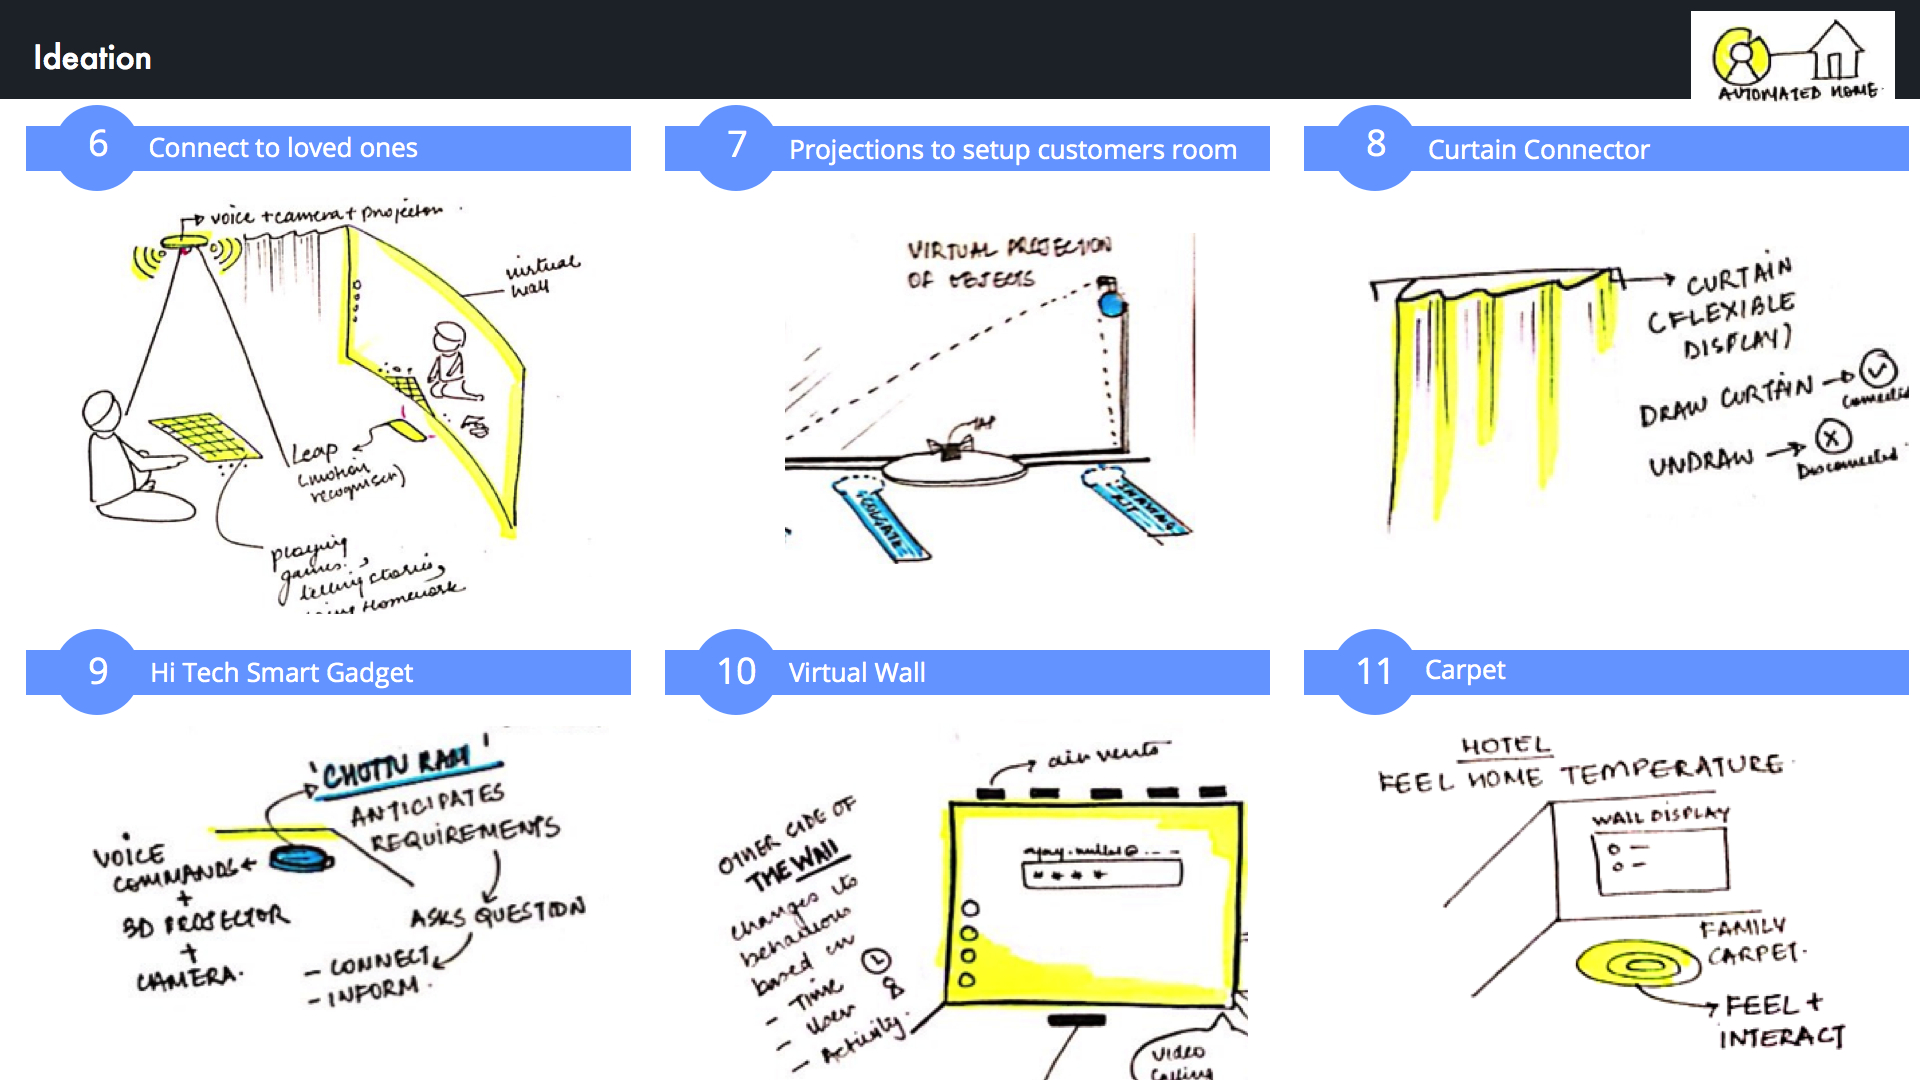 Ideation
AUTOMATED HOME.
6
Connect to loved ones
voice + camera + projector
virtual
wall
Leap
(motion
recogniser)
playing
games,
telling stories,
Homework
7
Projections to setup customers room
VIRTUAL PROJECTION
OF OBJECTS
TAP
COLGATE
SHAVING
KIT
8
Curtain Connector
CURTAIN
(FLEXIBLE
DISPLAY)
DRAW CURTAIN
UNDRAW
Disconnected
9
Hi Tech Smart Gadget
'CHOTTU RAM'
ANTICIPATES
REQUIREMENTS
VOICE
COMMANDS
+
3D PROJECTOR
+
CAMERA.
ASKS QUESTION
- CONNECT
- INFORM.
10
Virtual Wall
air vents
OTHER SIDE OF
THE WALL
changes its
behaviours
based on
- Time
- User
- Activity.
****
Video
Calling
11
Carpet
HOTEL
FEEL HOME TEMPERATURE.
WALL DISPLAY
FAMILY
CARPET.
FEEL +
INTERACT